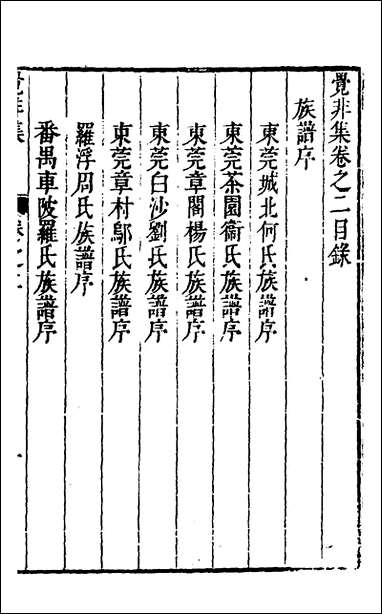 覺非集卷之二目錄
族譜序
東莞城北何氏族譜序
東莞茶園衞氏族譜序
東莞章閣楊氏族譜序
東莞白沙劉氏族譜序
東莞章村鄔氏族譜序
羅浮周氏族譜序
番禺車陂羅氏族譜序
覺非集
卷之二